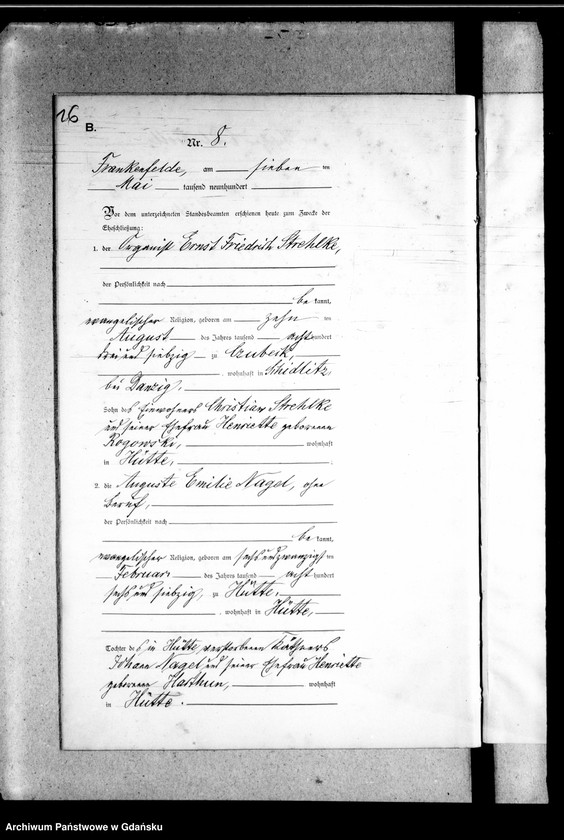 26
B.
Nr. 8.
Frankenfelde, am sieben ten
Mai tausend neunhundert
Vor dem unterzeichneten Standesbeamten erschienen heute zum Zwecke der
Eheschließung:
1. der Organist Ernst Friedrich Strehlke,
der Persönlichkeit nach
be kannt,
evangelischer Religion, geboren am zehn ten
August des Jahres tausend acht hundert
drei und siebzig zu
, wohnhaft in Schidlitz
bei Danzig.
Sohn des Einwohners Christian Strehlke
und seiner Ehefrau Henriette geborenen
Rogowski, wohnhaft
in Hütte,
2. die Auguste Emilie Nagel, ohne
Beruf,
der Persönlichkeit nach
be kannt,
evangelischer Religion, geboren am sechsundzwanzigs ten
Februar des Jahres tausend acht hundert
sechs und siebzig, zu Hütte,
, wohnhaft in Hütte,
Tochter des in Hütte verstorbenen Käthners
Johann Nagel und seiner Ehefrau Henriette
geborenen wohnhaft
in Hütte.
Archiwum Państwowe w Gdańsku